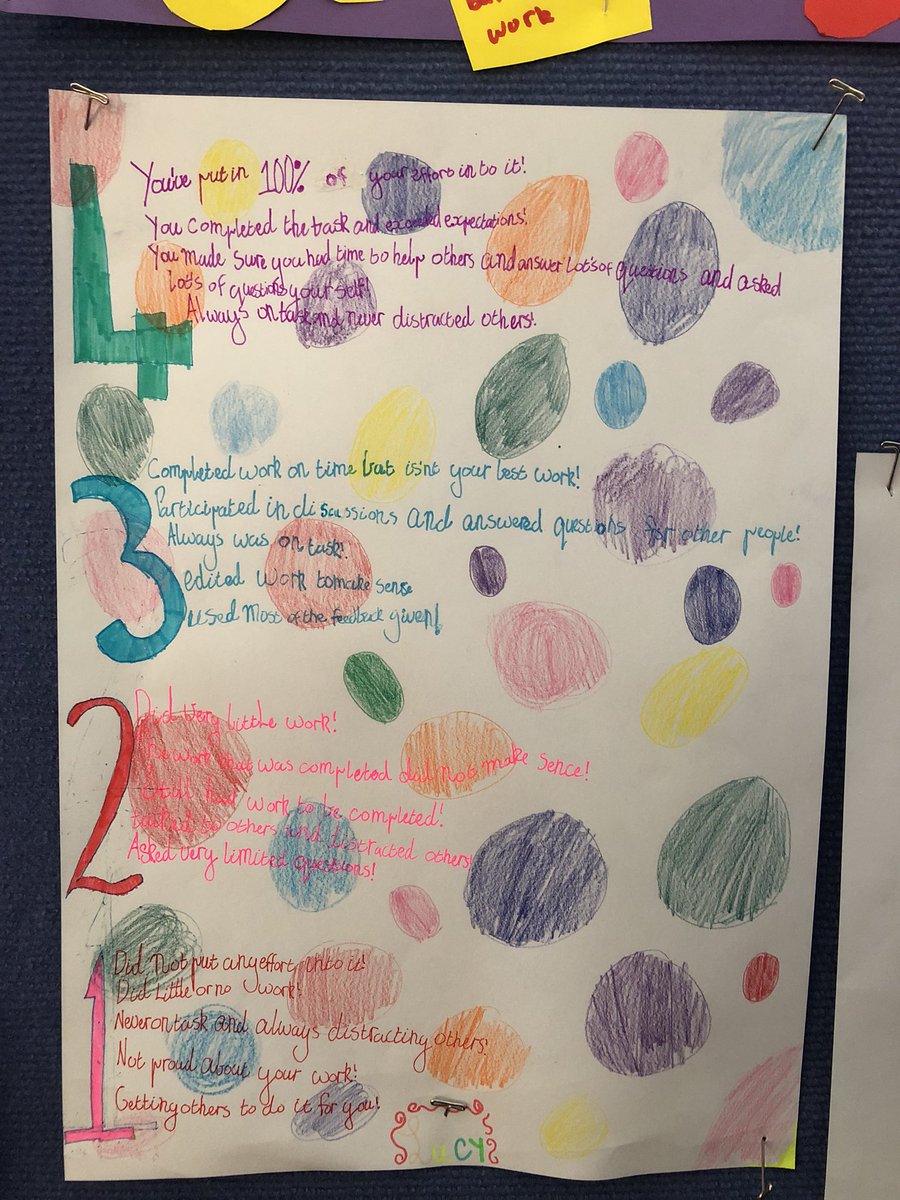 work
4
You've put in 100% of your effort in to it!
You completed the task and exceeded expectations!
You made sure you had time to help others and answer Lot's of questions and asked
Lot's of questions your self!
Always on task and never distracted others!
3
Completed work on time but isnt your best work!
Participated in discussions and answered questions for other people!
Always was on task!
edited work to make sense
used most of the feedback given!
2
Did very little work!
The work that was completed did not make sence!
Still had work to be completed!
talked to others and distracted others!
Asked very limited questions!
1
Did Not put any effort into it!
Did Little or no work!
Never on task and always distracting others!
Not proud about your work!
Getting others to do it for you!
LUCY